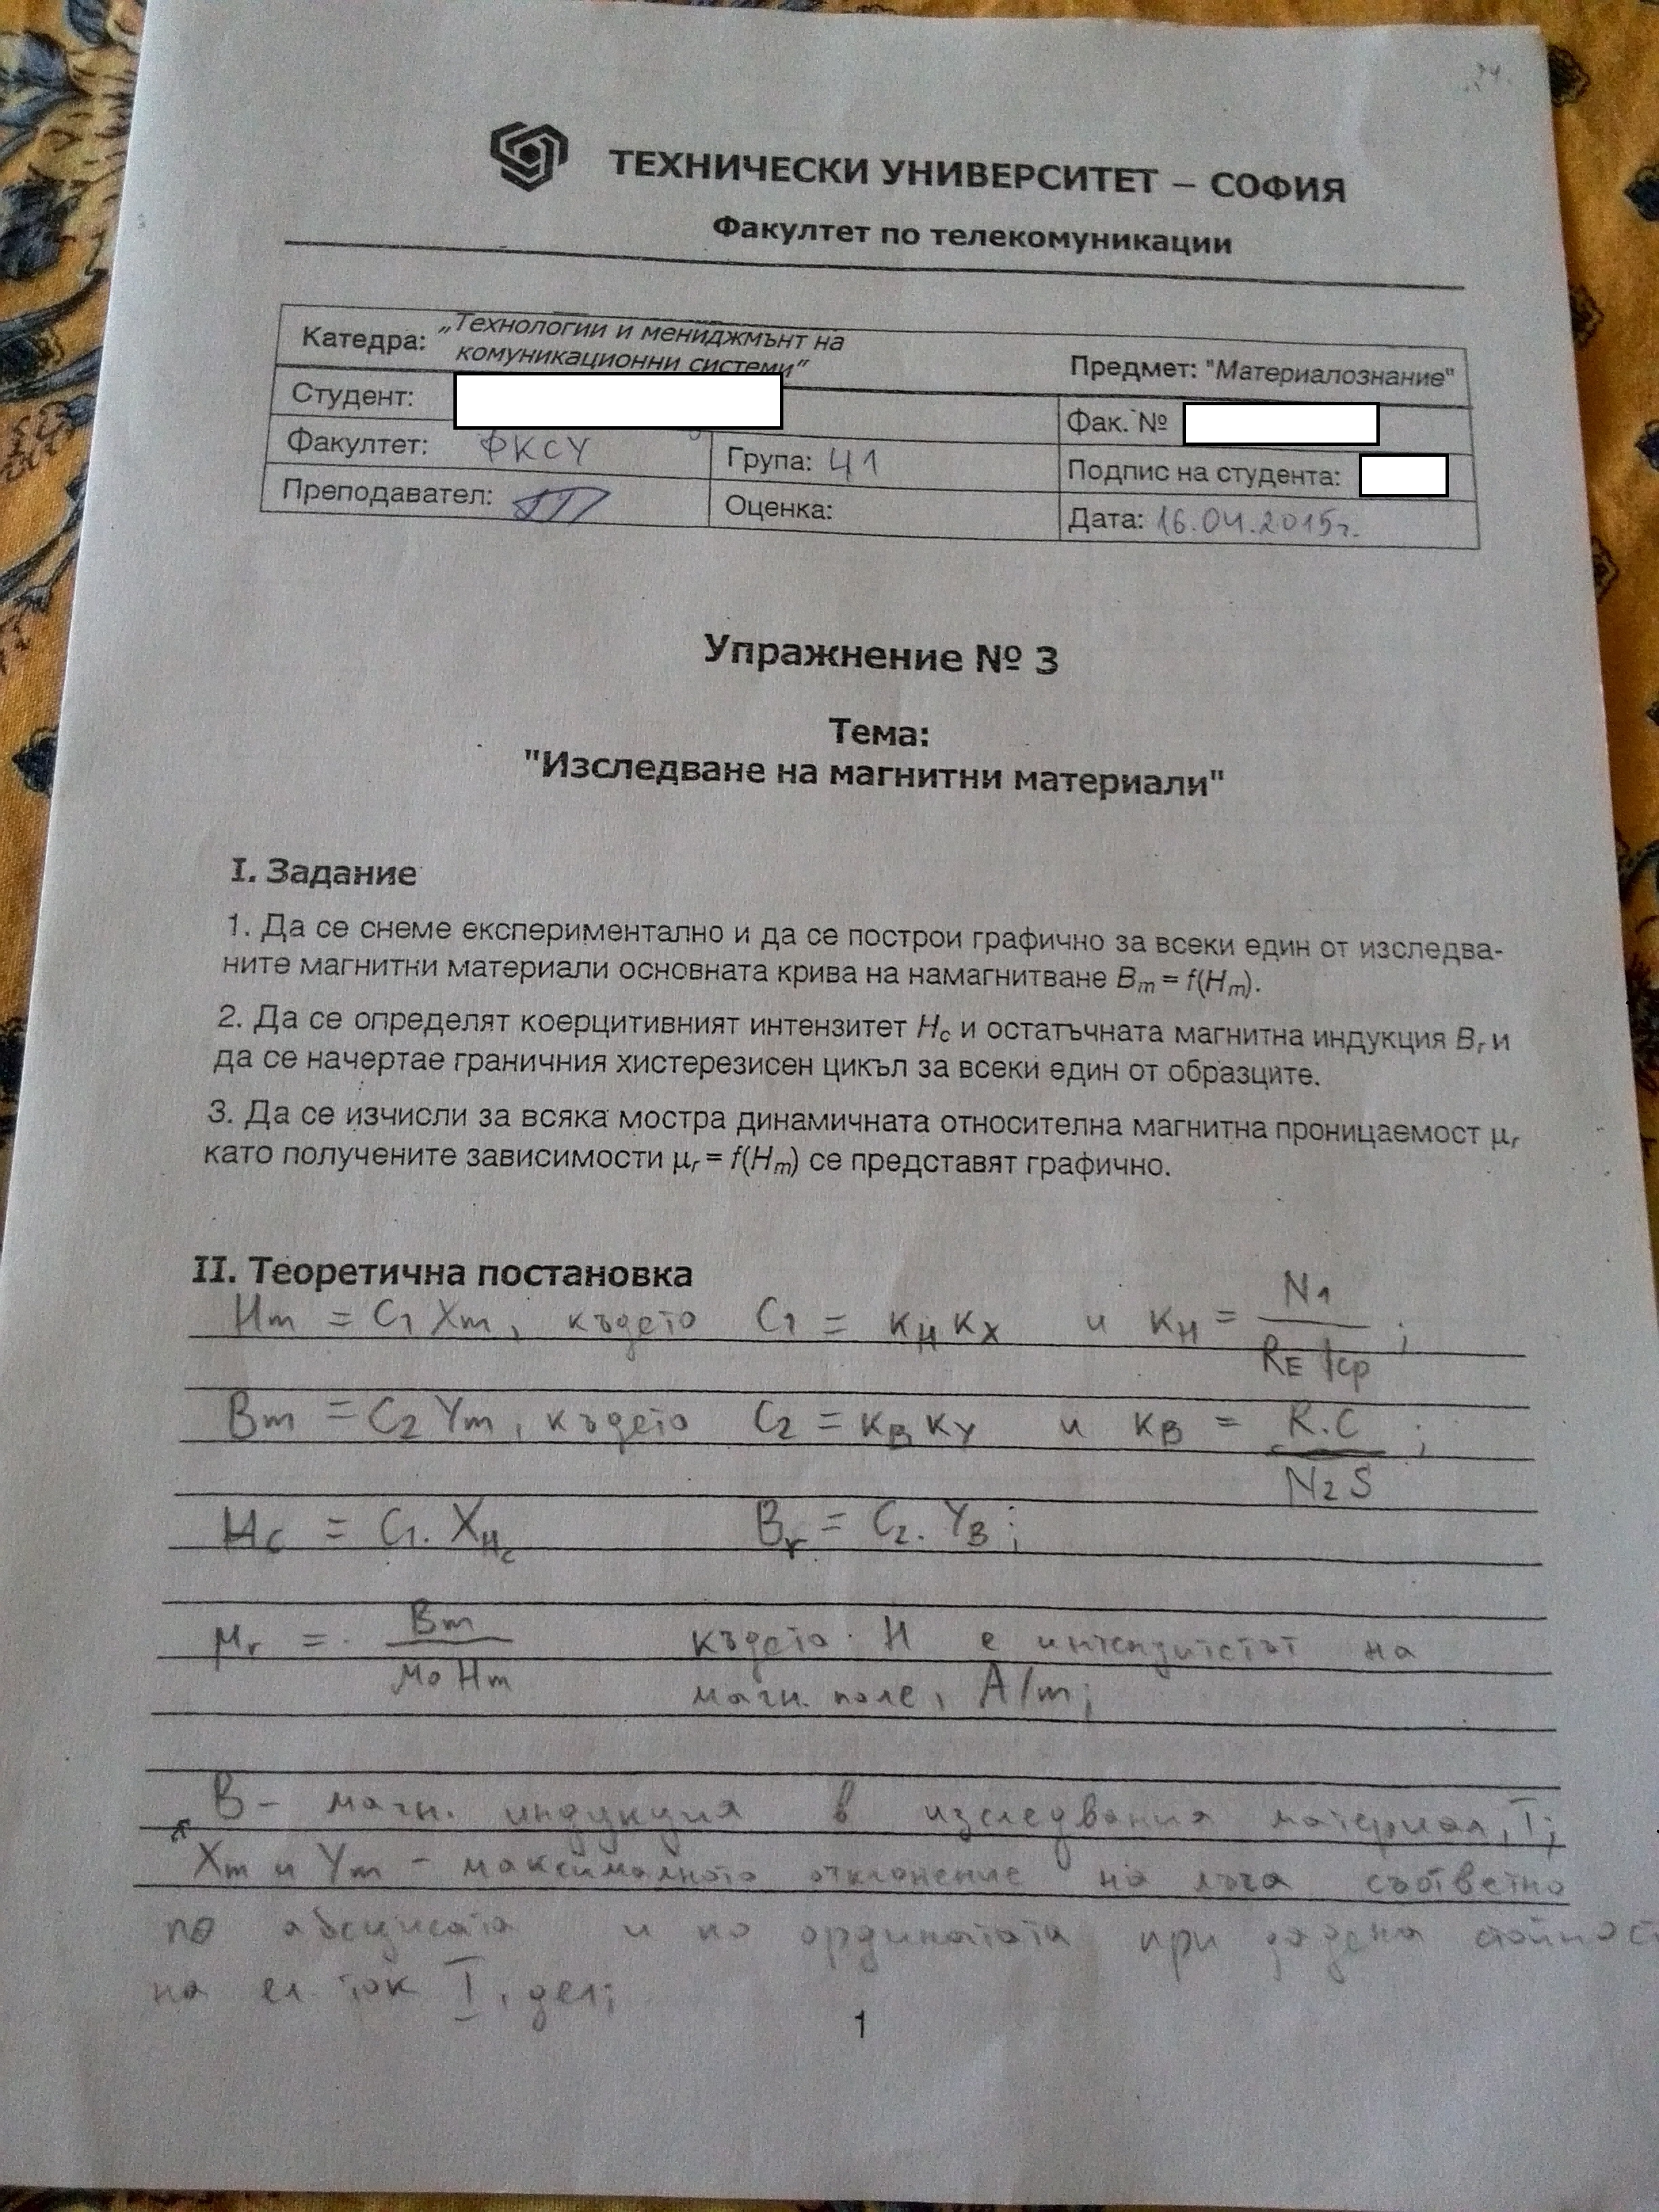 ТЕХНИЧЕСКИ УНИВЕРСИТЕТ – СОФИЯ
Факултет по телекомуникации
Катедра: „Технологии и мениджмънт на
комуникационни системи”
Предмет: "Материалознание"
Студент:
Фак. №
Факултет: ФКСУ
Група: 41
Подпис на студента:
Преподавател:
Оценка:
Дата: 16.04.2015г.
Упражнение № 3
Тема:
"Изследване на магнитни материали"
I. Задание
1. Да се снеме експериментално и да се построи графично за всеки един от изследва-
ните магнитни материали основната крива на намагнитване Bm = f(Hm).
2. Да се определят коерцитивният интензитет Hc и остатъчната магнитна индукция Br и
да се начертае граничния хистерезисен цикъл за всеки един от образците.
3. Да се изчисли за всяка мостра динамичната относителна магнитна проницаемост μr
като получените зависимости μr = f(Hm) се представят графично.
II. Теоретична постановка
Hm = C1 Xm, където C1 = кH кX и кH = N1 / RE lср ;
Bm = C2 Ym, където C2 = кB кY и кB = R.C / N2 S ;
Hc = C1. XHc Br = C2. YB;
μr = Bm / μ0 Hm където H е интензитетът на
магн. поле, A/m;
B – магн. индукция в изследвания материал, T;
Xm и Ym – максималното отклонение на лъча съответно
по абсцисата и по ординатата при дадена стойност
на ел. ток I, дел;
1